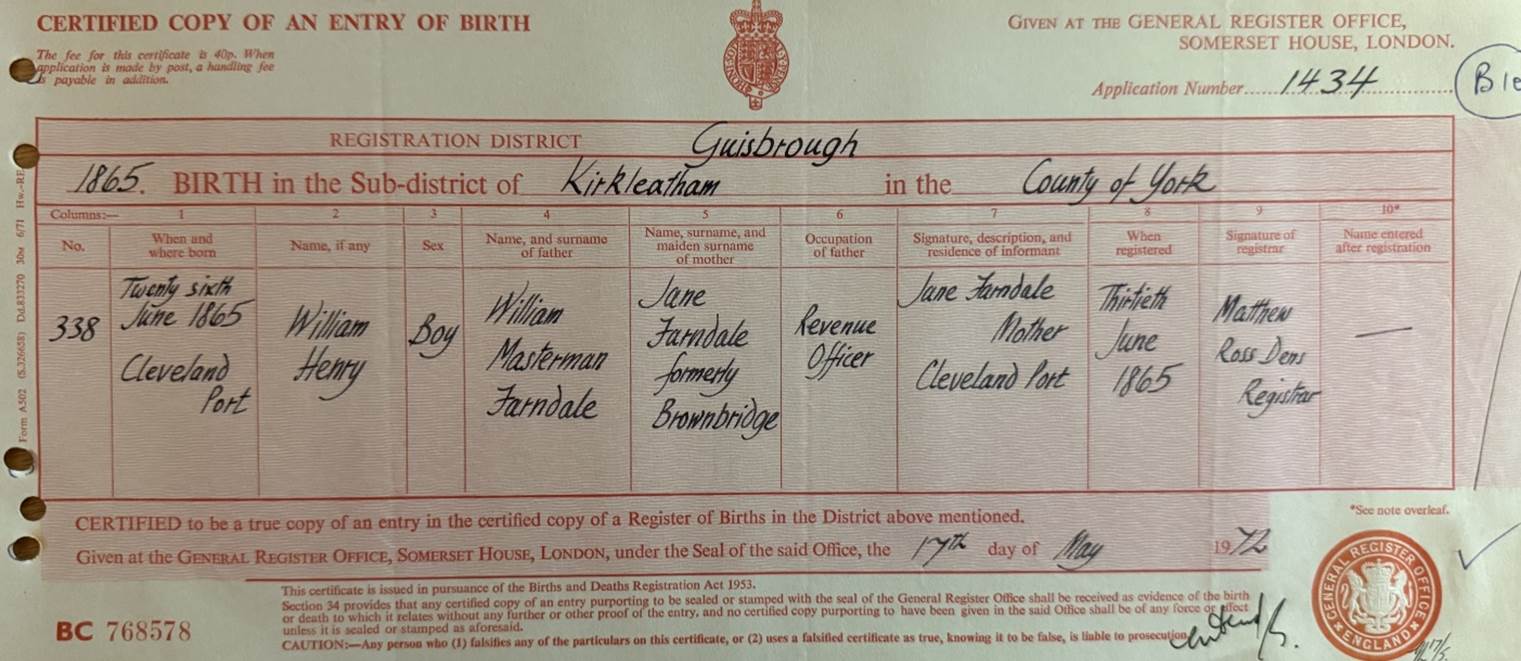 CERTIFIED COPY OF AN ENTRY OF BIRTH
The fee for this certificate is 40p. When
application is made by post, a handling fee
is payable in addition.
GIVEN AT THE GENERAL REGISTER OFFICE,
SOMERSET HOUSE, LONDON.
Application Number 1434
REGISTRATION DISTRICT Guisbrough
1865. BIRTH in the Sub-district of Kirkleatham in the County of York
Columns:— 1 2 3 4 5 6 7 8 9 10*
No.
When and
where born
Name, if any
Sex
Name, and surname
of father
Name, surname, and
maiden surname
of mother
Occupation
of father
Signature, description, and
residence of informant
When
registered
Signature of
registrar
Name entered
after registration
338
Twenty sixth
June 1865
Cleveland
Port
William
Henry
Boy
William
Masterman
Farndale
Jane
Farndale
formerly
Brownbridge
Revenue
Officer
Jane Farndale
Mother
Cleveland Port
Thirtieth
June
1865
Matthew
Ross Dens
Registrar
Form A502 (S.326658) Dd.833270 30M 6/71 Hw.-RE
*See note overleaf.
CERTIFIED to be a true copy of an entry in the certified copy of a Register of Births in the District above mentioned.
Given at the GENERAL REGISTER OFFICE, SOMERSET HOUSE, LONDON, under the Seal of the said Office, the 17th day of May 1972
This certificate is issued in pursuance of the Births and Deaths Registration Act 1953.
Section 34 provides that any certified copy of an entry purporting to be sealed or stamped with the seal of the General Register Office shall be received as evidence of the birth
or death to which it relates without any further or other proof of the entry, and no certified copy purporting to have been given in the said Office shall be of any force or effect
unless it is sealed or stamped as aforesaid.
CAUTION:—Any person who (1) falsifies any of the particulars on this certificate, or (2) uses a falsified certificate as true, knowing it to be false, is liable to prosecution.
BC 768578
GENERAL REGISTER OFFICE
ENGLAND